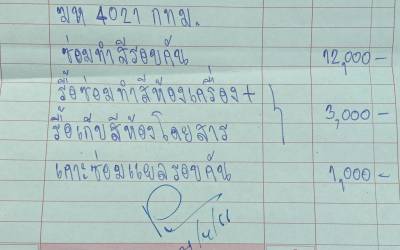 ฆห 4021 กทม.
ซ่อมทำสีรอบคัน 12,000-
รื้อซ่อมทำสีห้องเครื่อง +
รื้อเก็บสีห้องโดยสาร 3,000-
เคาะซ่อมแผลรอบคัน 1,000-